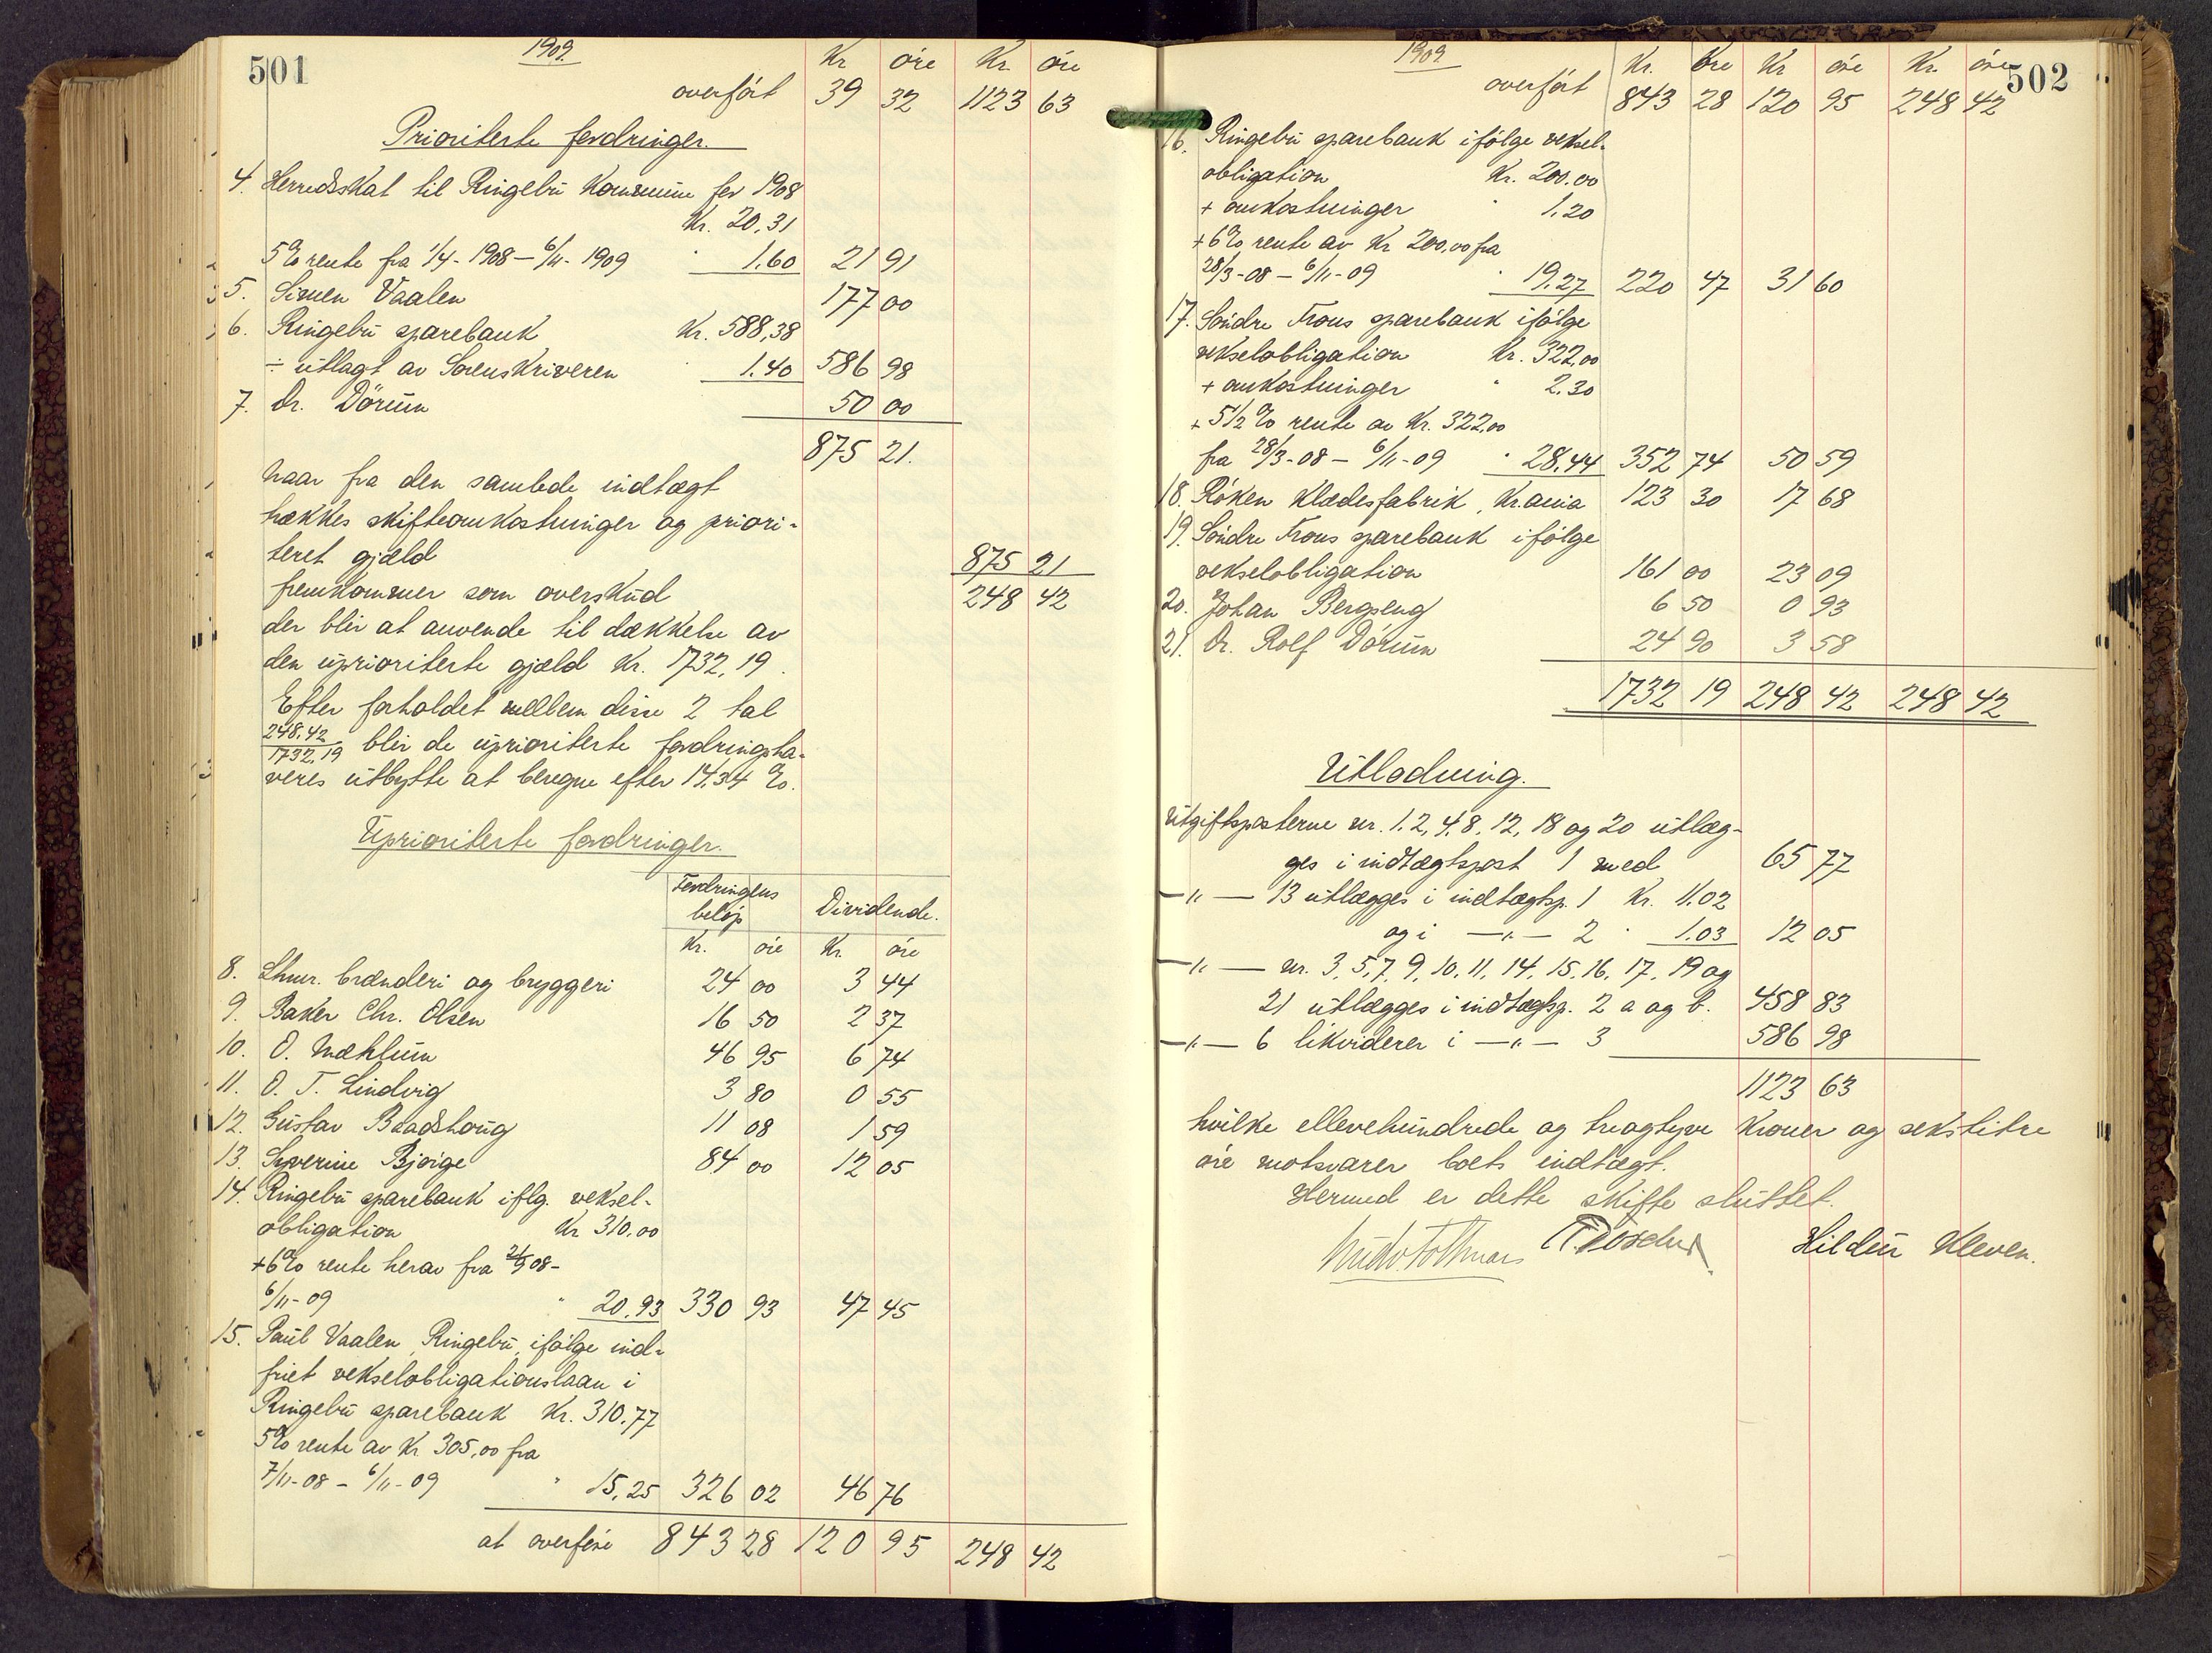 501
1909.
Kr øre Kr. øre
overført 39 32 1123 63
Prioriterte fordringer.
4. Herredsskat til Ringebu Kommune for 1908
Kr. 20,31
5% rente fra 1/4-1908 – 6/11-1909 " 1.60 21 91
5. Simen Vaalen 177 00
6. Ringebu sparebank Kr. 588,38
÷ utlagt av Sorenskriveren " 1.40 586 98
7. Dr. Dörum 50 00
875 21.
Naar fra den samlede indtægt
trækkes skifteomkostninger og priori-
teret gjæld 875 21
fremkommer som overskud 248 42
der blir at anvende til dækkelse av
den uprioriterte gjæld Kr. 1732,19.
Efter forholdet mellem disse 2 tal
248.42/1732,19 blir de uprioriterte fordringsha-
veres utbytte at beregne efter 14,34 %.
Uprioriterte fordringer.
Fordringens beløp Dividende.
Kr. øre Kr. øre
8. Lhmr. brænderi og bryggeri 24 00 3 44
9. Baker Chr. Olsen 16 50 2 37
10. O. Mæhlum 46 95 6 74
11. O. T. Lindvig 3 80 0 55
12. Gustav Baadshoug 11 08 1 59
13. Syverine Bjørge 84 00 12 05
14. Ringebu sparebank iflg. veksel-
obligation Kr 310,00
+6% rente herav fra 08-
6/11-09 " 20.93 330 93 47 45
15. Paul Vaalen, Ringebu, ifølge ind-
friet vekselobligationslaan i
Ringebu sparebank Kr. 310,77
5% rente av Kr 305,00 fra
7/11-08 – 6/11-09 " 15,25 326 02 46 76
at overføre 843 28 120 95 248 42
502
1909
Kr. Øre Kr øre Kr. øre
overført 843 28 120 95 248 42
16. Ringebu sparebank ifølge veksel-
obligation Kr. 200.00
+ omkostninger " 1,20
+6% rente av Kr 200,00 fra
28/3-08 – 6/11-09 " 19,27 220 47 31 60
17. Söndre Frons sparebank ifølge
vekselobligation Kr. 322,00
+ omkostninger " 2,30
+ 5½ % rente av Kr. 322,00
fra 28/3-08 – 6/11-09 " 28,44 352 74 50 59
18. Röken Klædesfabrik, Kr.ania 123 30 17 68
19. Söndre Frons sparebank ifølge
vekselobligation 161 00 23 09
20. Johan Bergseng 6 50 0 93
21. Dr. Rolf Dörum 24 90 3 58
1732 19 248 42 248 42
Utlodning.
Utgiftsposterne nr. 1. 2, 4. 8. 12, 18 og 20 utlæg-
ges i indtægtspost 1 med 65 77
—"— 13 utlægges i indtægtsp. 1 Kr. 11.02
og i —"— 2 " 1.03 12 05
—"— nr. 3, 5, 7, 9, 10, 11, 14. 15. 16. 17. 19 og
21 utlægges i indtægtsp. 2 a og b. 458 83
—"— 6 likviderer i —"— 3 586 98
1123 63
hvilke ellevehundrede og treogtyve Kroner og sekstitre
øre motsvarer boets indtægt.
Hermed er dette skifte sluttet.
Hildur Kleven.